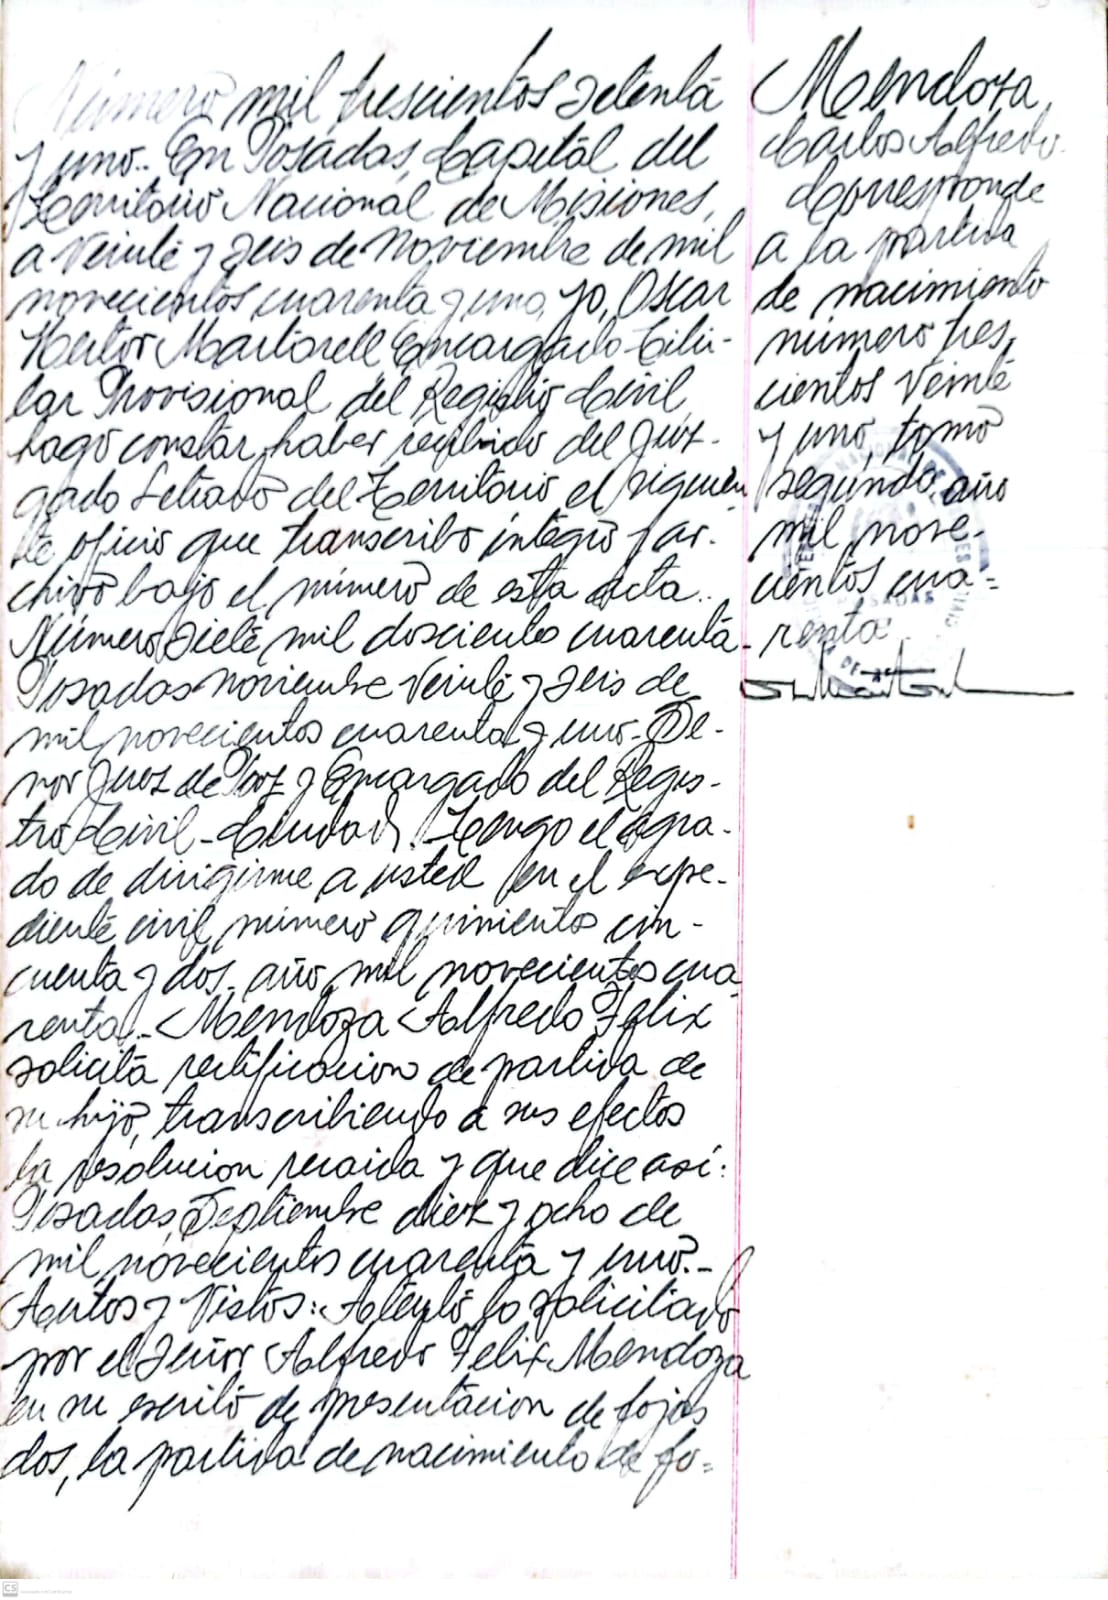 Número mil trescientos setenta
y uno.. En Posadas, Capital del
Territorio Nacional de Misiones,
a veinte y seis de noviembre de mil
novecientos cuarenta y uno, yo, Oscar
Hector Martorell Encargado Titu-
lar Provisional del Registro Civil,
hago constar, haber recibido del Juz-
gado Letrado del Territorio el siguien
te oficio que transcribo integro y ar-
chivo bajo el número de esta acta..
Número siete mil doscientos cuarenta
Posadas noviembre veinte y seis de
mil novecientos cuarenta y uno. Se-
ñor Juez de Paz y Encargado del Regis-
tro Civil - Ciudad, Tengo el agra-
do de dirigirme a usted en el expe-
diente civil número quinientos cin-
cuenta y dos, año mil novecientos cua
renta.- Mendoza Alfredo Felix
solicita rectificacion de partida de
su hijo, transcribiendo a sus efectos
la resolucion recaida y que dice así:
Posadas, Septiembre diez y ocho de
mil novecientos cuarenta y uno.-
Autos y Vistos: Atento lo solicitado
por el Señor Alfredo Felix Mendoza
en su escrito de presentacion de fojas
dos, la partida de nacimiento de fo=
Mendoza,
Carlos Alfredo.
Corresponde
a la partida
de nacimiento
número tres,
cientos veinte
y uno, tomo
segundo, año
mil nove-
cientos cua=
renta.
POSADAS
CS